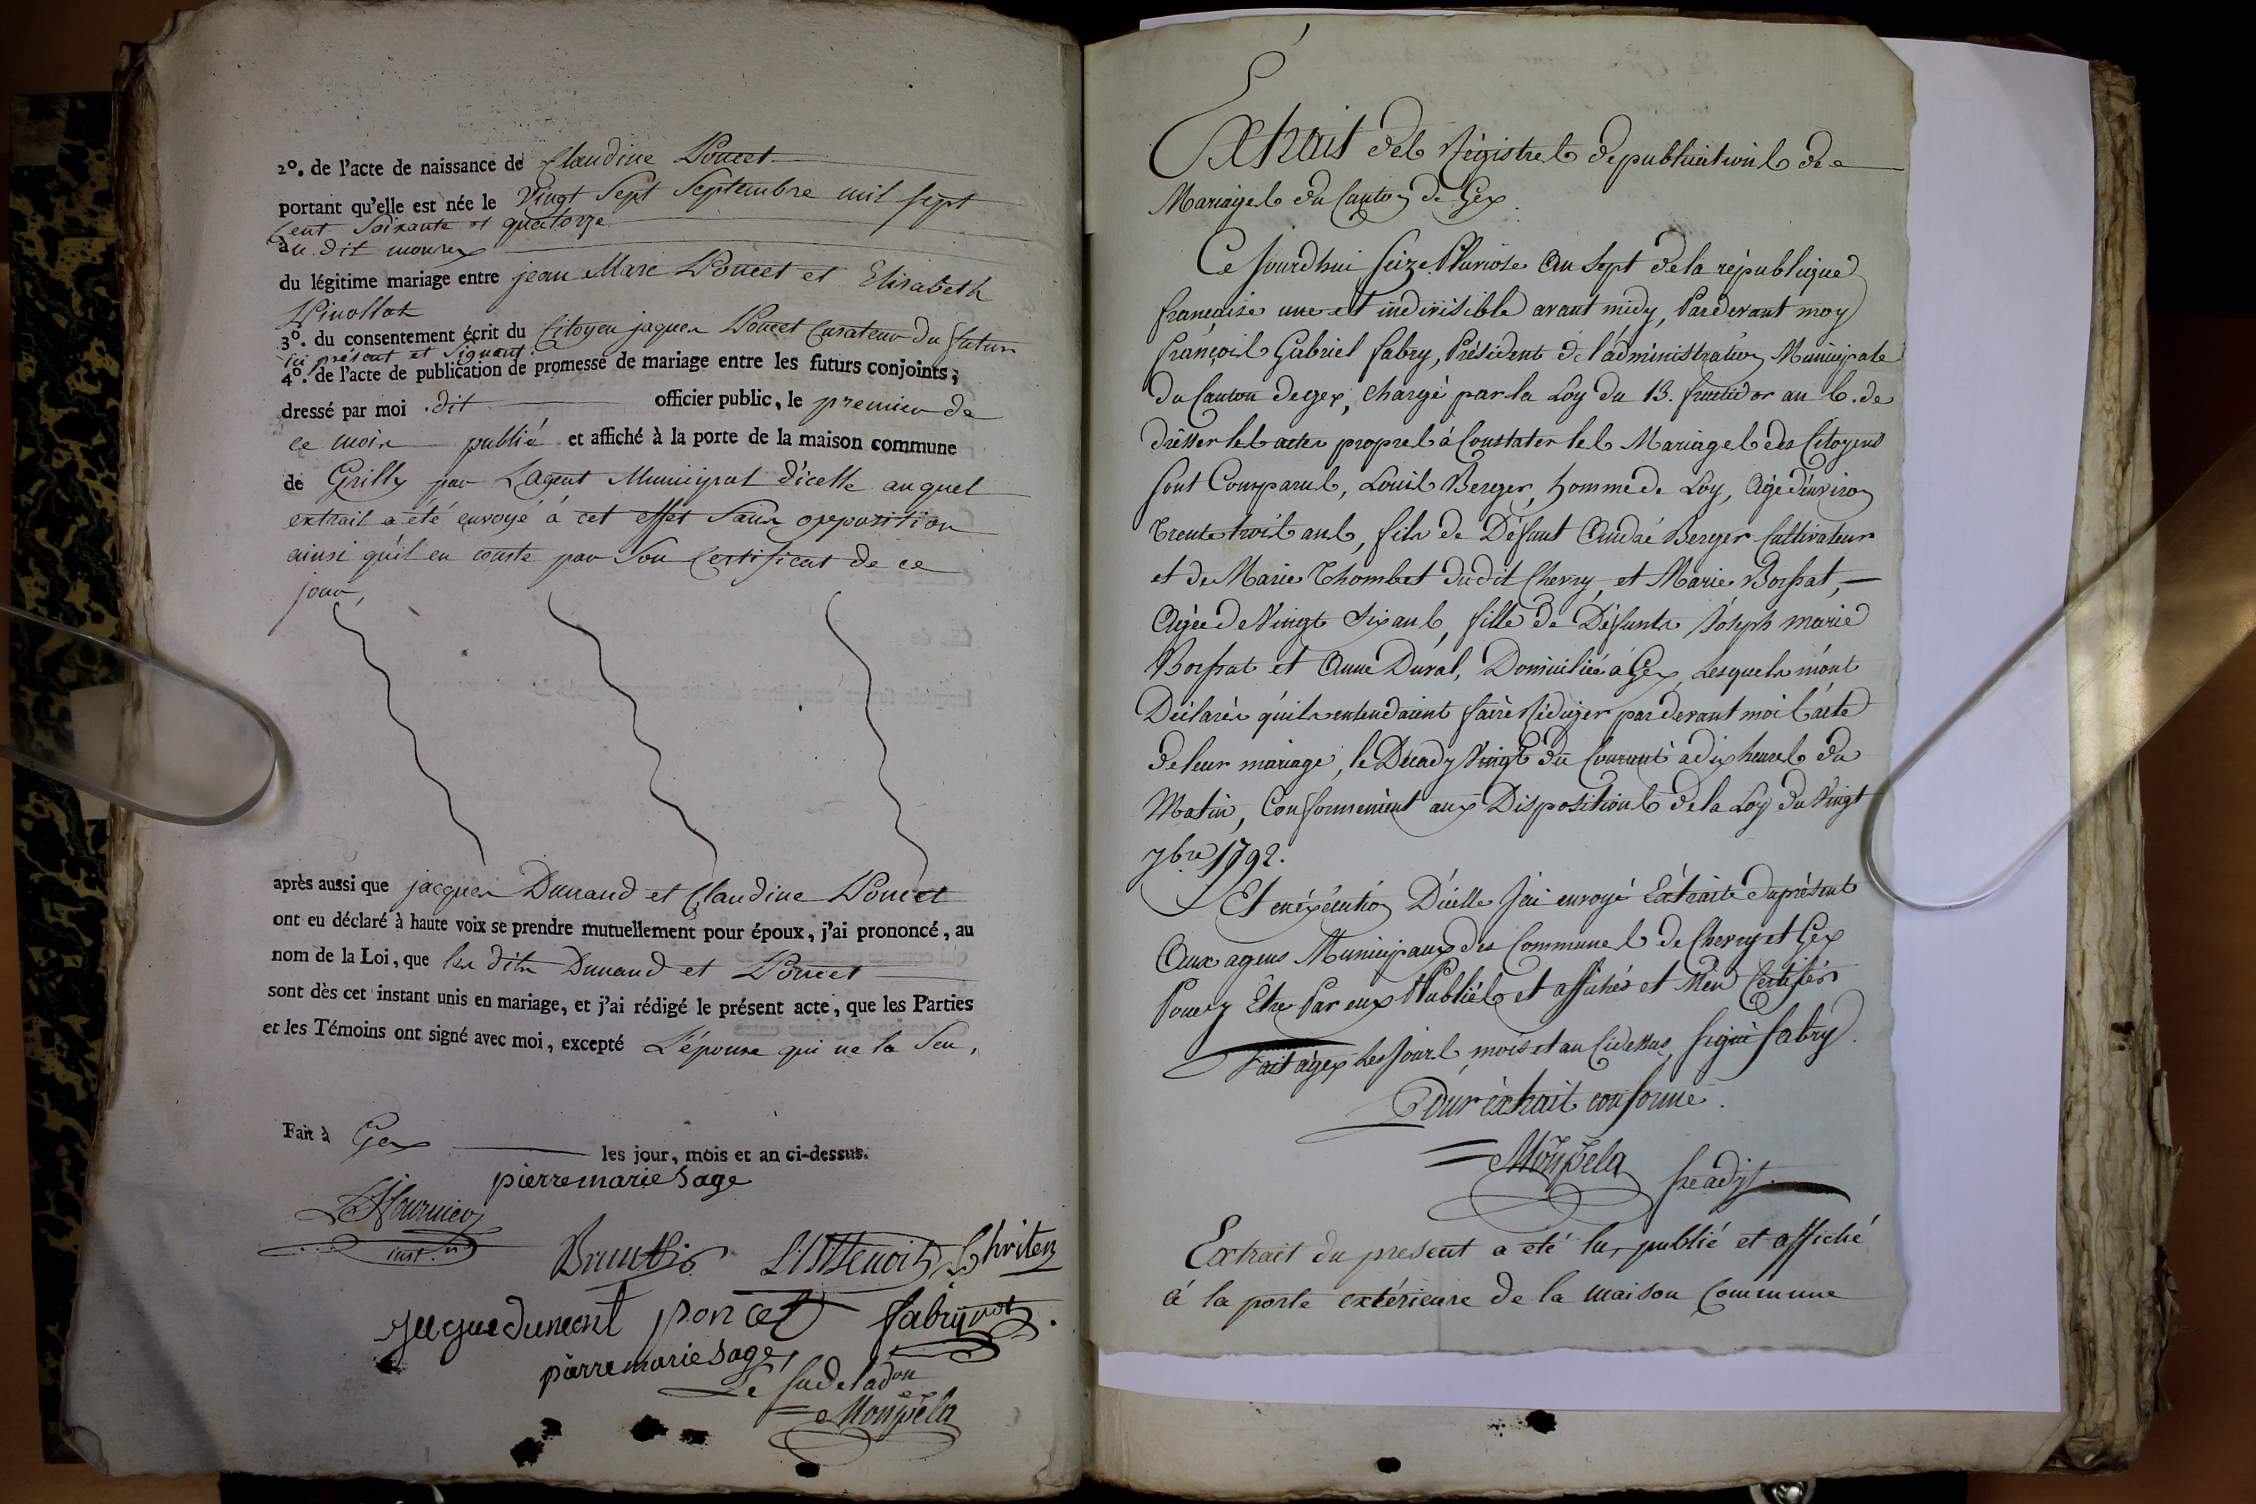 2º. de l'acte de naissance de Claudine Poncet
portant qu'elle est née le vingt sept Septembre mil sept
Cent Soixante et quatorze
à u dit mourex
du légitime mariage entre jean Marc Poncet et Elisabeth
Pinollat
3º. du consentement écrit du Citoyen jaques Poncet Curateur du futur
ici présent et Signant.
4º. de l'acte de publication de promesse de mariage entre les futurs conjoints,
dressé par moi .dit officier public, le premier de
ce mois publié et affiché à la porte de la maison commune
de Grilly par L'agent Municipal d'icelle auquel
extrait a été envoyé à cet effet Sans opposition
ainsi qu'il en conste par Son Certificat de ce
jour,
après aussi que jacques Dunand et Claudine Poncet
ont eu déclaré à haute voix se prendre mutuellement pour époux, j'ai prononcé, au
nom de la Loi, que les dits Dunand et Poncet
sont dès cet instant unis en mariage, et j'ai rédigé le présent acte, que les Parties
et les Témoins ont signé avec moi, excepté L'épouse qui ne la Seu,
Fait à Gex les jour, mois et an ci-dessus.
pierre marie Sage
Fournier
inst.
poncet fabry
pierre marie Sage,
Le
Monpela
Extrait des Régistres de publications de
Mariages du Canton de Gex.
Ce Jourdhui Seize Pluviose an Sept de la république
française une et indivisible avant midy, Pardevant moy
françois Gabriel fabry, Président de l'administration Municipale
du Canton de gex, Chargé par la Loy du 13. fructidor an 6. de
drésser les actes propres à Constater les Mariages des Citoyens
Sont Comparus, Louis Berger, homme de Loy, Agé d'environ
Trente trois ans, fils de Défunt André Berger Cultivateur
et de Marie Thombet dudit Chevry, et Marie Bossat,
Agée de Vingt Six ans, fille de Défunts Joseph marie
Bossat et Anne Duval, Domiciliée à Gex, Lesquels m'ont
Déclarés qu'ils entendaient faire Rédiger pardevant moi l'acte
de leur mariage, le Decady Vingt du Courant à dix heures du
Matin, Conformément aux Dispositions de la Loy du Vingt
7bre 1792.
Et en éxécution D'icelle J'ai envoyé Extraits du présent
Aux agens Municipaux des Communes de Chevry et Gex
Pour y Être Par eux Publiés et affichés et M'en Certifiér
Fait à gex les Jours mois et an Cidessus, Signé fabry.
Pour extrait conforme.
Monpela
Extrait du présent a été lu, publié et affiché
à la porte extérieure de la maison Commune